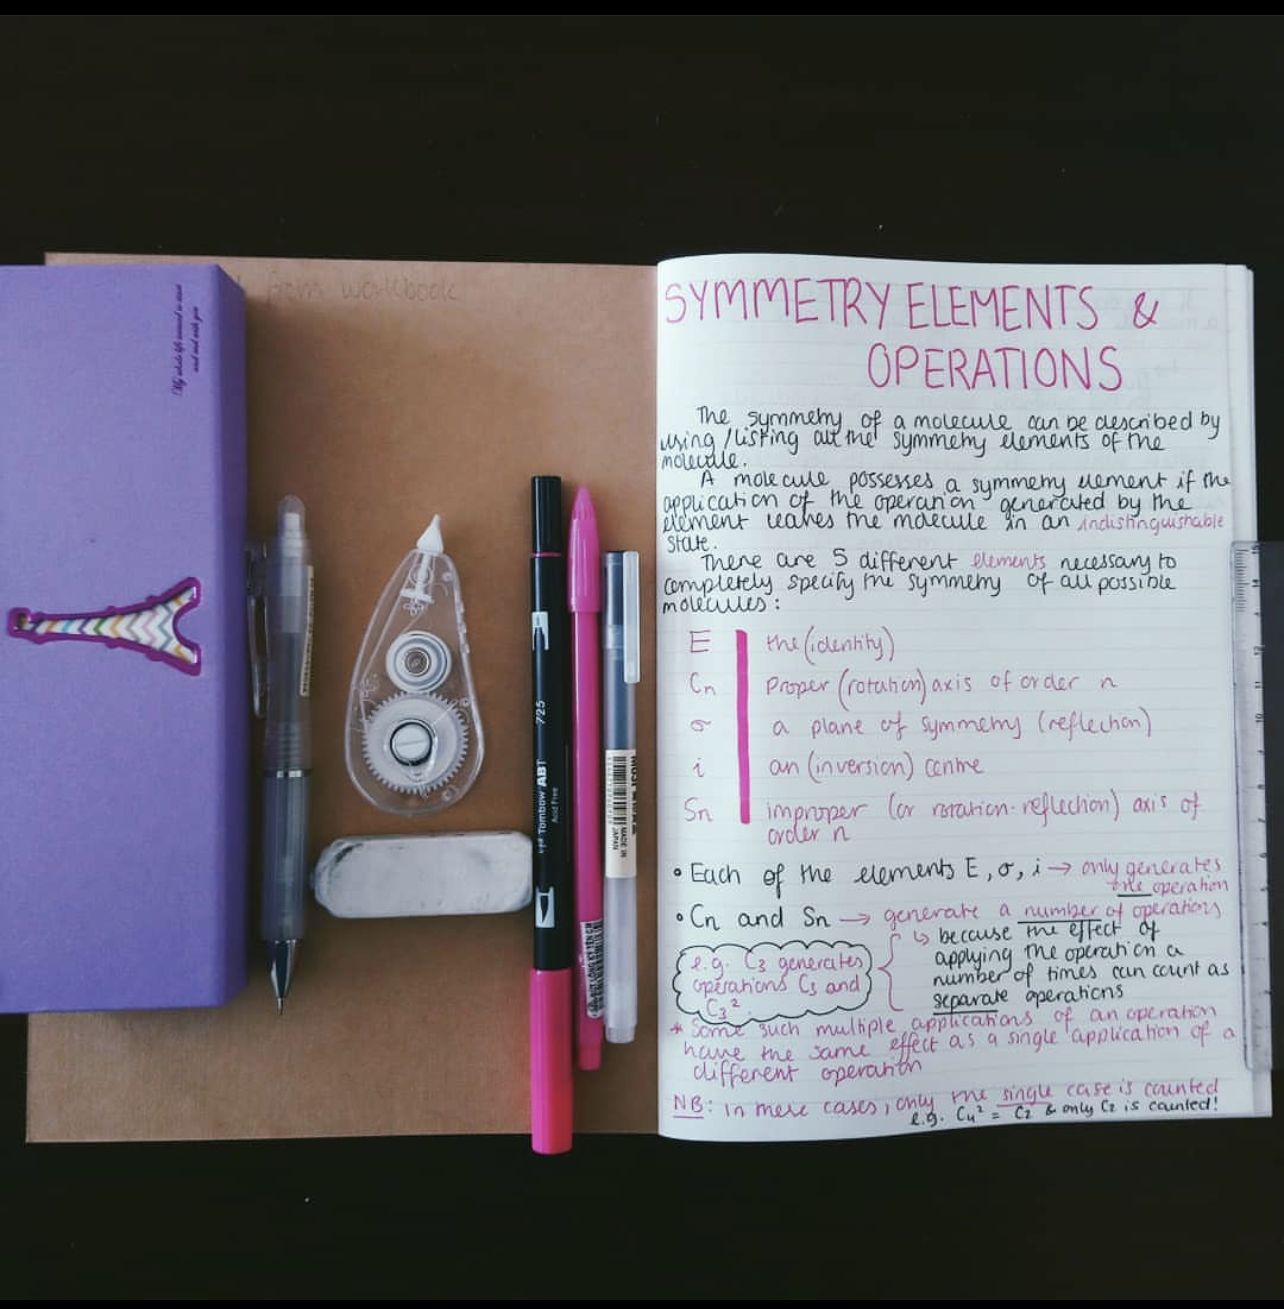 from workbook
My whole life
and with you
725
ABT
Tombow
Acid Free
MADE IN
JAPAN
SYMMETRY ELEMENTS &
OPERATIONS
The symmetry of a molecule can be described by
using/listing all the symmetry elements of the
molecule.
A molecule possesses a symmetry element if the
application of the operation generated by the
element leaves the molecule in an indistinguishable
state.
There are 5 different elements necessary to
completely specify the symmetry of all possible
molecules:
E the (identity)
Cn proper (rotation) axis of order n
σ a plane of symmetry (reflection)
i an (inversion) centre
Sn improper (or rotation-reflection) axis of
order n
• Each of the elements E, σ, i → only generates
one operation
• Cn and Sn → generate a number of operations
↳ because the effect of
applying the operation a
number of times can count as
separate operations
e.g. C3 generates
operations C3 and
C3².
* Some such multiple applications of an operation
have the same effect as a single application of a
different operation
NB: in these cases, only the single case is counted
e.g. C4² = C2 & only C2 is counted!